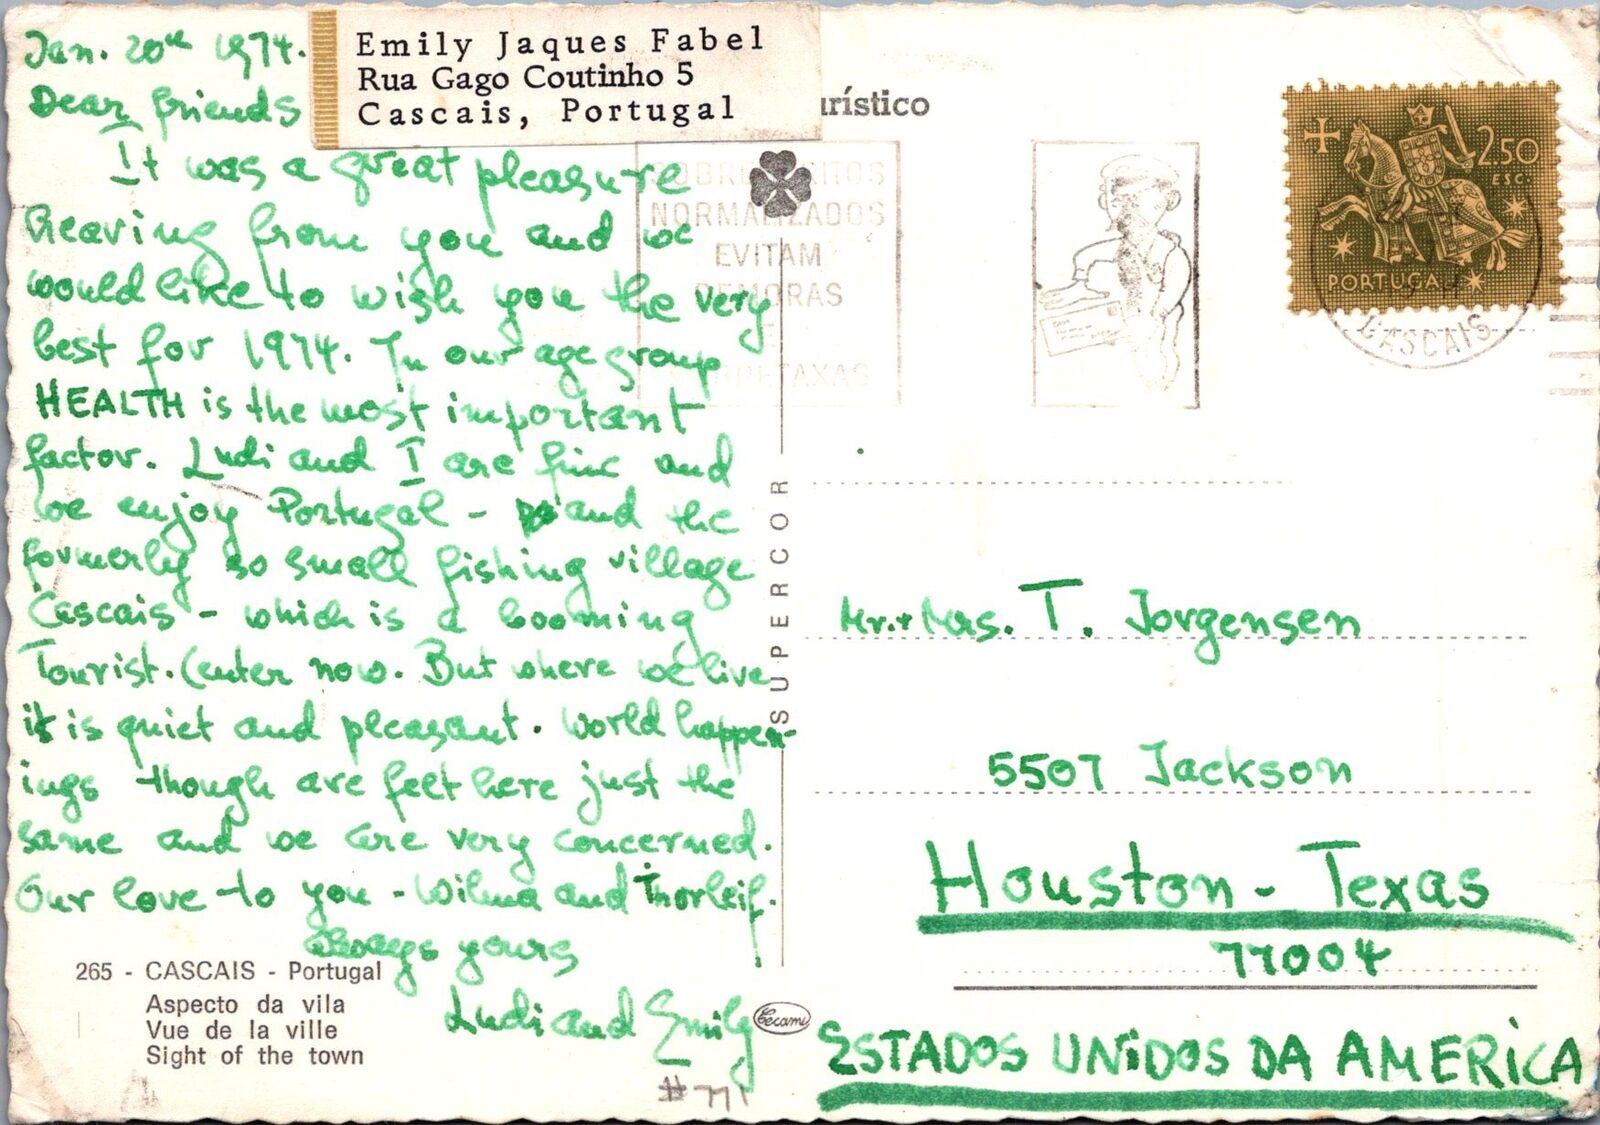 Jan. 20th 1974.
Dear friends
It was a great pleasure
hearing from you and we
would like to wish you the very
best for 1974. In our age group
HEALTH is the most important
factor. Ludi and I are fine and
we enjoy Portugal - and the
formerly so small fishing village
Cascais - which is a booming
Tourist. Center now. But where we live
it is quiet and pleasant. World happen-
ings though are felt here just the
same and we are very concerned.
Our love to you - Wilma and Thorleif.
always yours
Ludi and Emily
Emily Jaques Fabel
Rua Gago Coutinho 5
Cascais, Portugal
urístico
NORMALIZADOS
EVITAM
DEMORAS
2$50
ESC.
PORTUGAL
CASCAIS
SUPERCOR
Mr. + Mrs. T. Jorgensen
5507 Jackson
Houston - Texas
77004
ESTADOS UNIDOS DA AMERICA
265 - CASCAIS - Portugal
Aspecto da vila
Vue de la ville
Sight of the town
Cecami
#771